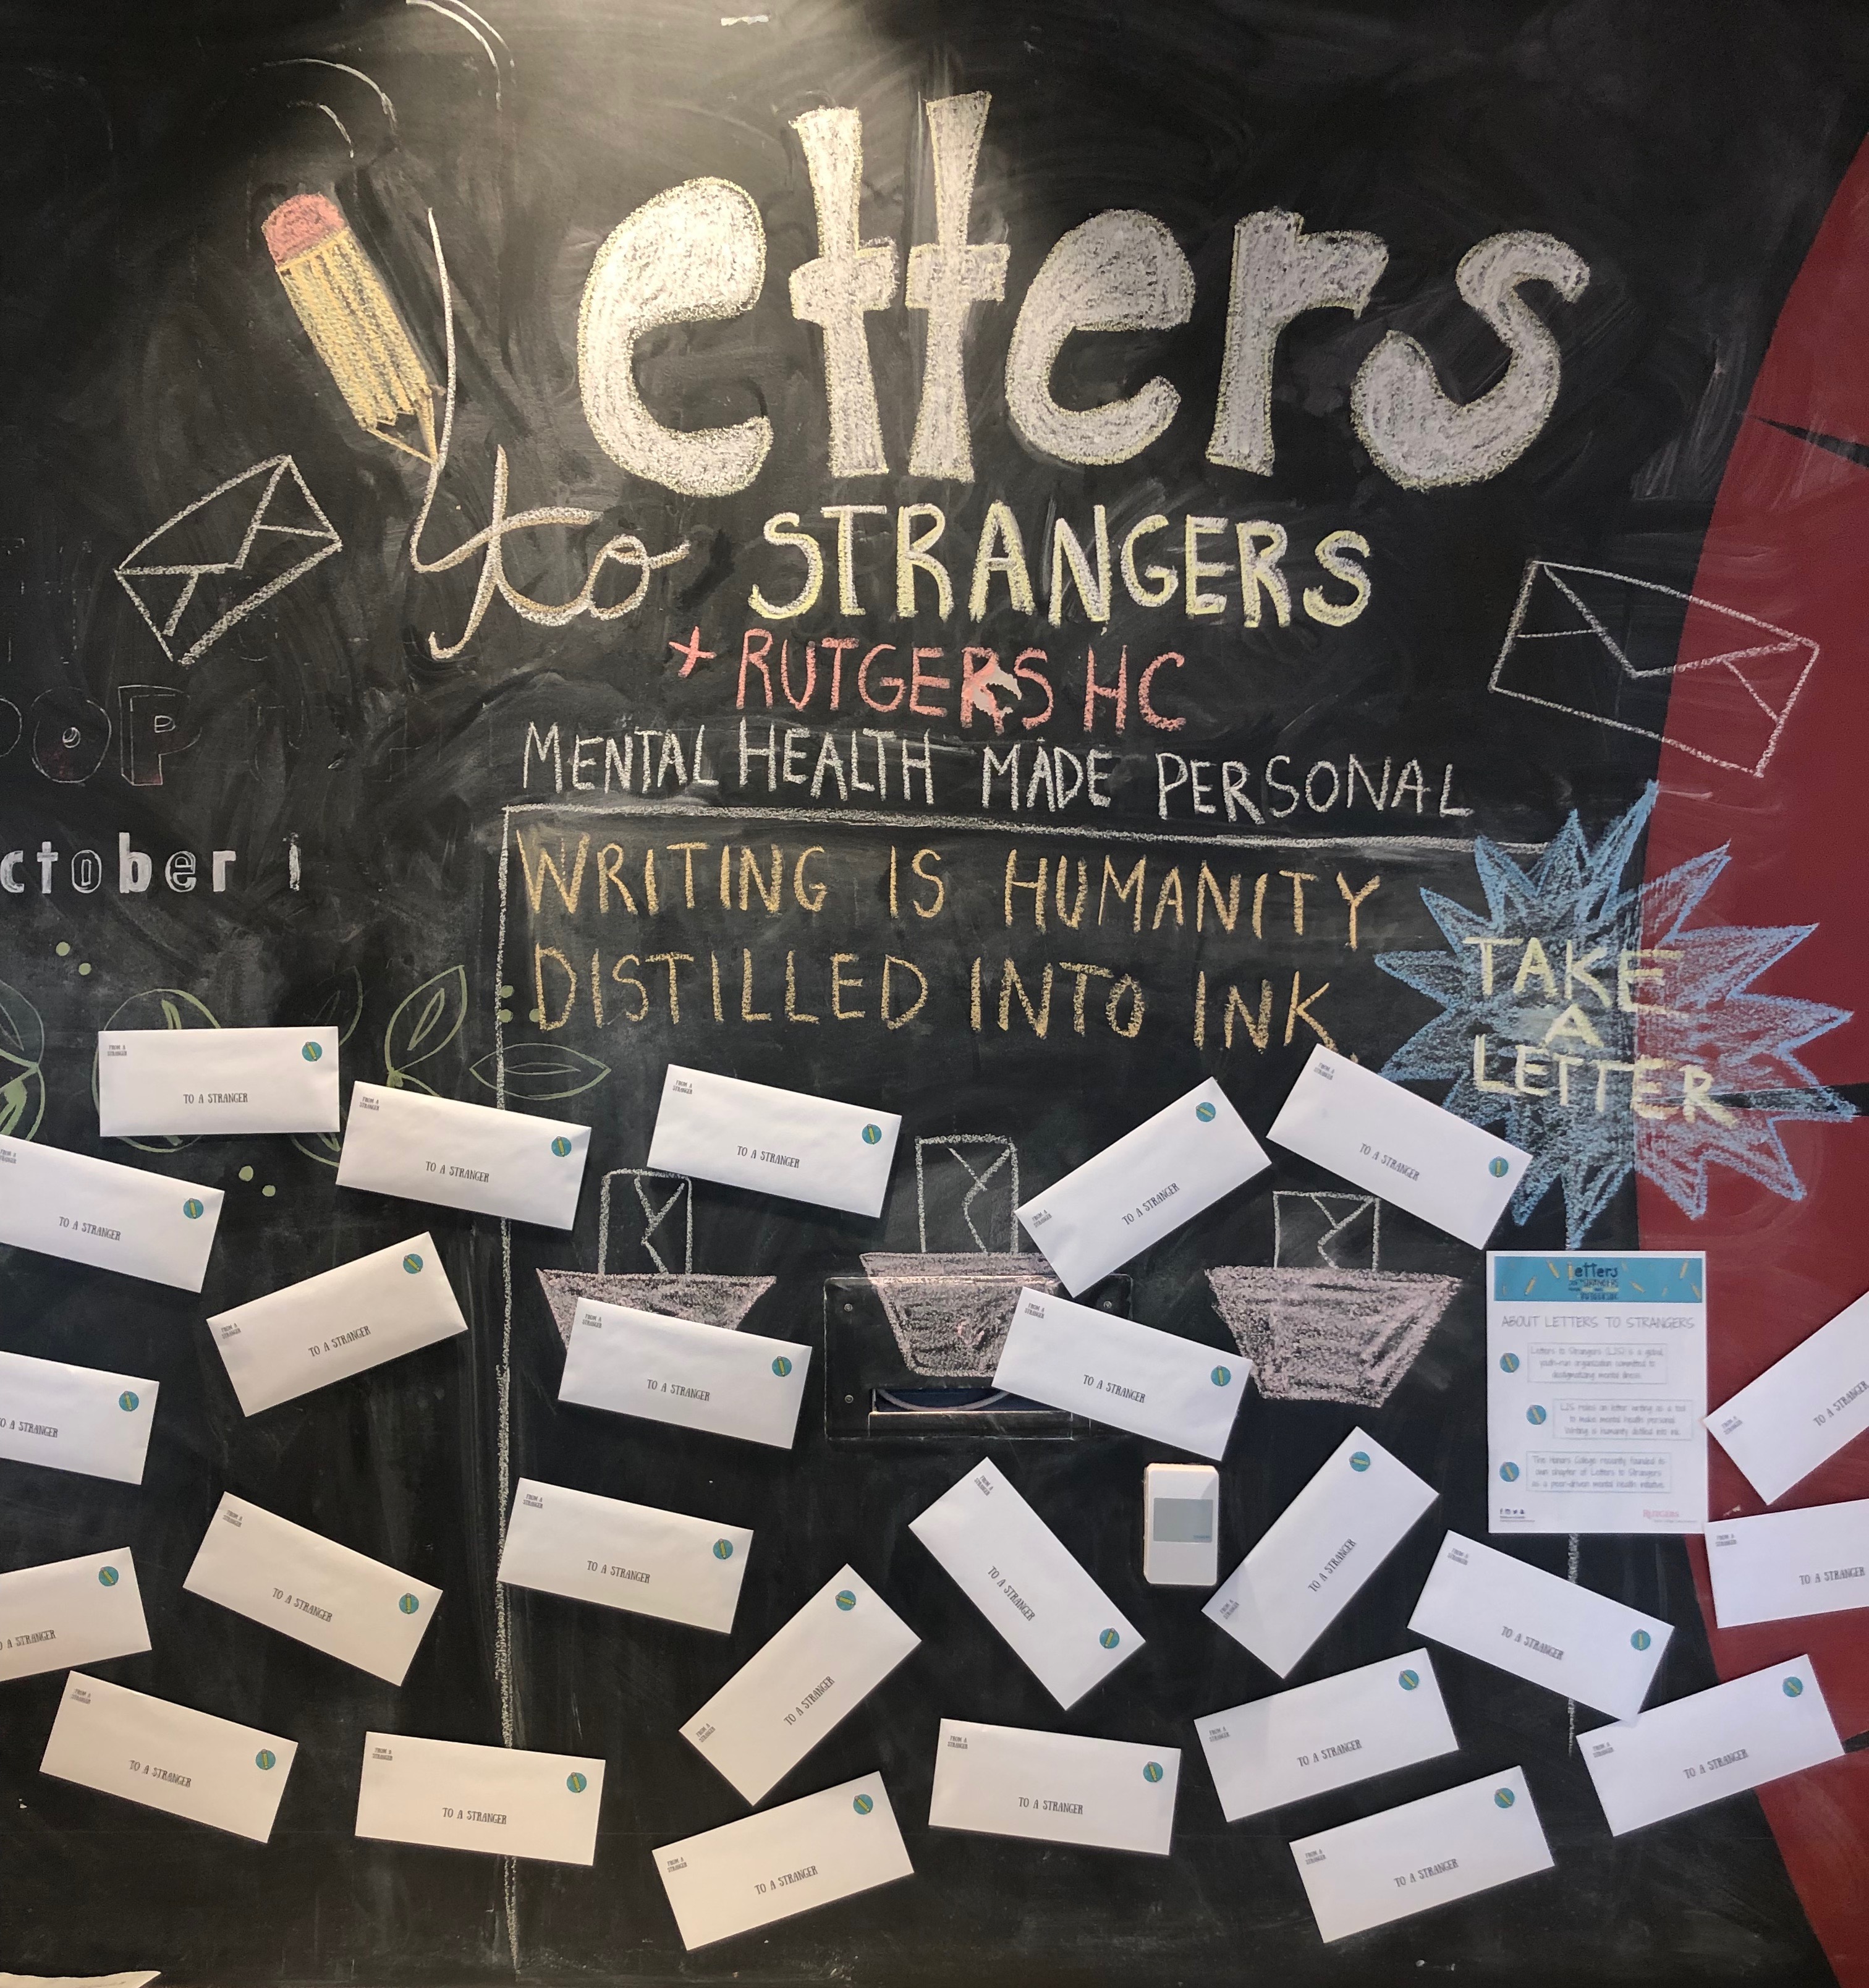 Letters
to STRANGERS
+ RUTGERS HC
MENTAL HEALTH MADE PERSONAL
WRITING IS HUMANITY
DISTILLED INTO INK.
TAKE
A
LETTER
POP
ctober 1
FROM A
STRANGER
TO A STRANGER
FROM A
STRANGER
TO A STRANGER
FROM A
STRANGER
TO A STRANGER
FROM A
STRANGER
TO A STRANGER
FROM A
STRANGER
TO A STRANGER
FROM A
STRANGER
TO A STRANGER
FROM A
STRANGER
TO A STRANGER
FROM A
STRANGER
TO A STRANGER
FROM A
STRANGER
TO A STRANGER
Letters
to STRANGERS
ABOUT LETTERS TO STRANGERS
Letters to Strangers (L2S) is a global,
youth-run organization committed to
destigmatizing mental illness.
L2S relies on letter writing as a tool
to make mental health personal.
Writing is humanity distilled into ink.
The Honors College recently founded its
own chapter of Letters to Strangers
as a peer-driven mental health initiative.
RUTGERS
O A STRANGER
FROM A
STRANGER
TO A STRANGER
FROM A
STRANGER
TO A STRANGER
FROM A
STRANGER
TO A STRANGER
FROM A
STRANGER
TO A STRANGER
FROM A
STRANGER
TO A STRANGER
FROM A
STRANGER
TO A STRANGER
FROM A
STRANGER
TO A STRANGER
O A STRANGER
FROM A
STRANGER
TO A STRANGER
FROM A
STRANGER
TO A STRANGER
FROM A
STRANGER
TO A STRANGER
FROM A
STRANGER
TO A STRANGER
FROM A
STRANGER
TO A STRANGER
FROM A
STRANGER
TO A STRANGER
FROM A
STRANGER
TO A STRANGER
FROM A
STRANGER
TO A STRANGER